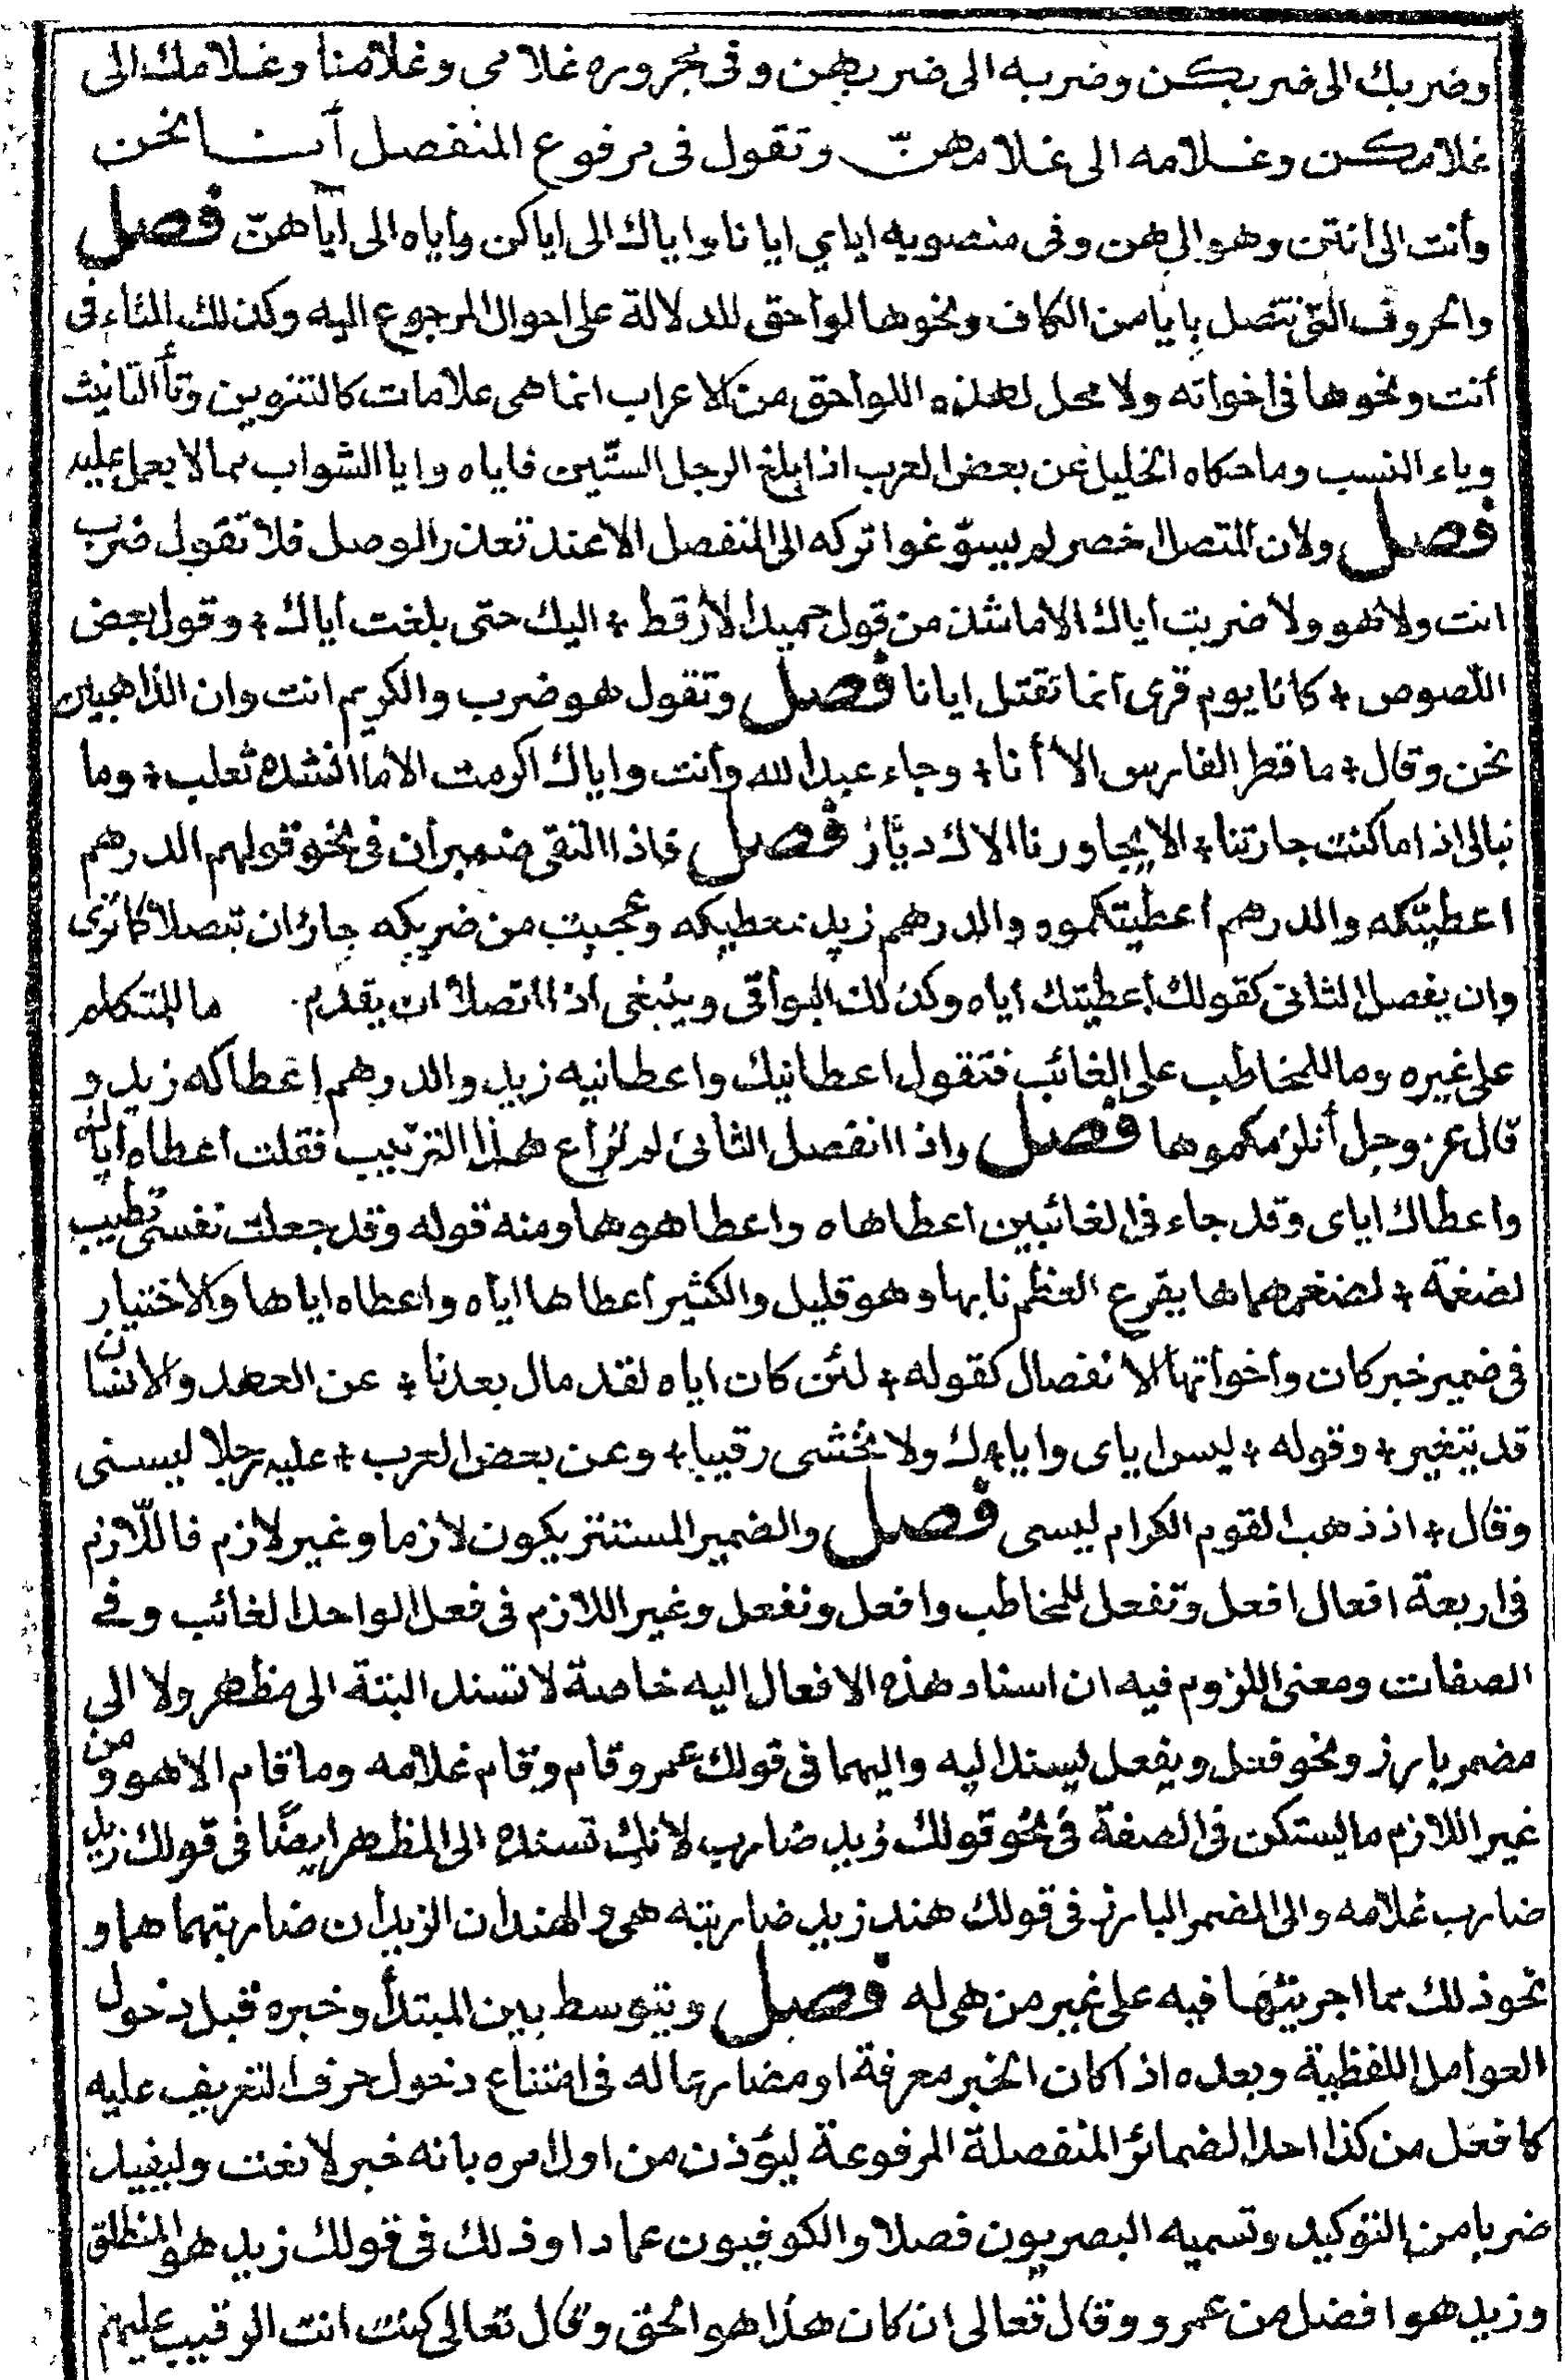 وضربك الى ضربكن وضربه الى ضربهن وفى مجروره غلامى وغلامنا وغلامك الى
غلامكن وغلامه الى غلامهنّ وتقول فى مرفوع المنفصل أنا نحن
وأنت الى أنتن وهو الى هن وفى منصوبه اياى ايانا واياك الى اياكن واياه الى اياهنّ فصل
والحروف التى تتصل بايا من الكاف ونحوها لواحق للدلالة على احوال المرجوع اليه وكذلك التاء فى
أنت ونحوها فى أخواته ولا محل لهذه اللواحق من الاعراب انما هى علامات كالتنوين وتاء التانيث
وياء النسب وما حكاه الخليل عن بعض العرب اذا بلغ الرجل الستّين فاياه وايا الشواب مما لا يعمل عليه
فصل ولان المتصل اخصر لم يسوّغوا تركه الى المنفصل الا عند تعذر الوصل فلا تقول ضرب
انت ولا هو ولا ضربت اياك الا ما شذ من قول حميد الارقط ÷ اليك حتى بلغت اياك ÷ وقول بعض
اللصوص ÷ كانا يوم قرى انما نقتل ايانا فصل وتقول هو ضرب والكريم انت وان الذاهبين
نحن وقال ÷ ما قطر الفارس الا أنا ÷ وجاء عبد الله وأنت واياك اكرمت الا ما انشده ثعلب ÷ وما
نبالى اذا ما كنت جارتنا ÷ الا يجاورنا الاك ديّار فصل فاذا التقى ضميران فى نحو قولهم الدرهم
اعطيتكه والدرهم اعطيتكموه والدرهم زيد معطيكه وعجبت من ضربكه جاز ان يتصلا كما ترى
وان يفصل الثانى كقولك أعطيتك اياه وكذلك البواقى وينبغى اذا اتصلا ان يقدم ما للمتكلم
على غيره وما للمخاطب على الغائب فتقول اعطانيك واعطانيه زيد والدرهم اعطاكه زيد و
قال عز وجل أنلزمكموها فصل واذا انفصل الثانى لم تراع هذا الترتيب فقلت اعطاه اياك
واعطاك اياى وقد جاء فى الغائبين اعطاهاه واعطاهوها ومنه قوله وقد جعلت نفسى تطيب
لضغمة ÷ لضغمهماها يقرع العظم نابها وهو قليل والكثير اعطاها اياه واعطاه اياها والاختيار
فى ضمير خبر كان وأخواتها الانفصال كقوله ÷ لئن كان اياه لقد مال بعدنا ÷ عن العهد والانسان
قد يتغير ÷ وقوله ÷ ليس اياى واياك ولا نخشى رقيبا ÷ وعن بعض العرب ÷ عليه رجلا ليسنى
وقال ÷ اذ ذهب القوم الكرام ليسى فصل والضمير المستتر يكون لازما وغير لازم فاللازم
فى اربعة افعال افعل وتفعل للمخاطب وافعل ونفعل وغير اللازم فى فعل الواحد الغائب وفى
الصفات ومعنى اللزوم فيه ان اسناد هذه الافعال اليه خاصة لا تسند البتة الى مظهر ولا الى
مضمر بارز ونحو فعل ويفعل يسند اليه واليهما فى قولك عمرو قام وقام غلامه وما قام الا هو ومن
غير اللازم ما يستكن فى الصفة فى نحو قولك زيد ضارب لانك تسنده الى المظهر ايضًا فى قولك زيد
ضارب غلامه والى المضمر البارز فى قولك هند زيد ضاربته هى والهندان الزيدان ضاربتهما هما و
نحو ذلك مما اجريتها فيه على غير من هى له فصل ويتوسط بين المبتدأ وخبره قبل دخول
العوامل اللفظية وبعده اذا كان الخبر معرفة او مضارعا له فى امتناع دخول حرف التعريف عليه
كافعل من كذا احد الضمائر المنفصلة المرفوعة ليؤذن من اول امره بانه خبر لا نعت وليفيد
ضربا من التوكيد وتسميه البصريون فصلا والكوفيون عمادا وذلك فى قولك زيد هو المنطلق
وزيد هو افضل من عمرو وقال تعالى ان كان هذا هو الحق وقال تعالى كنت انت الرقيب عليهم